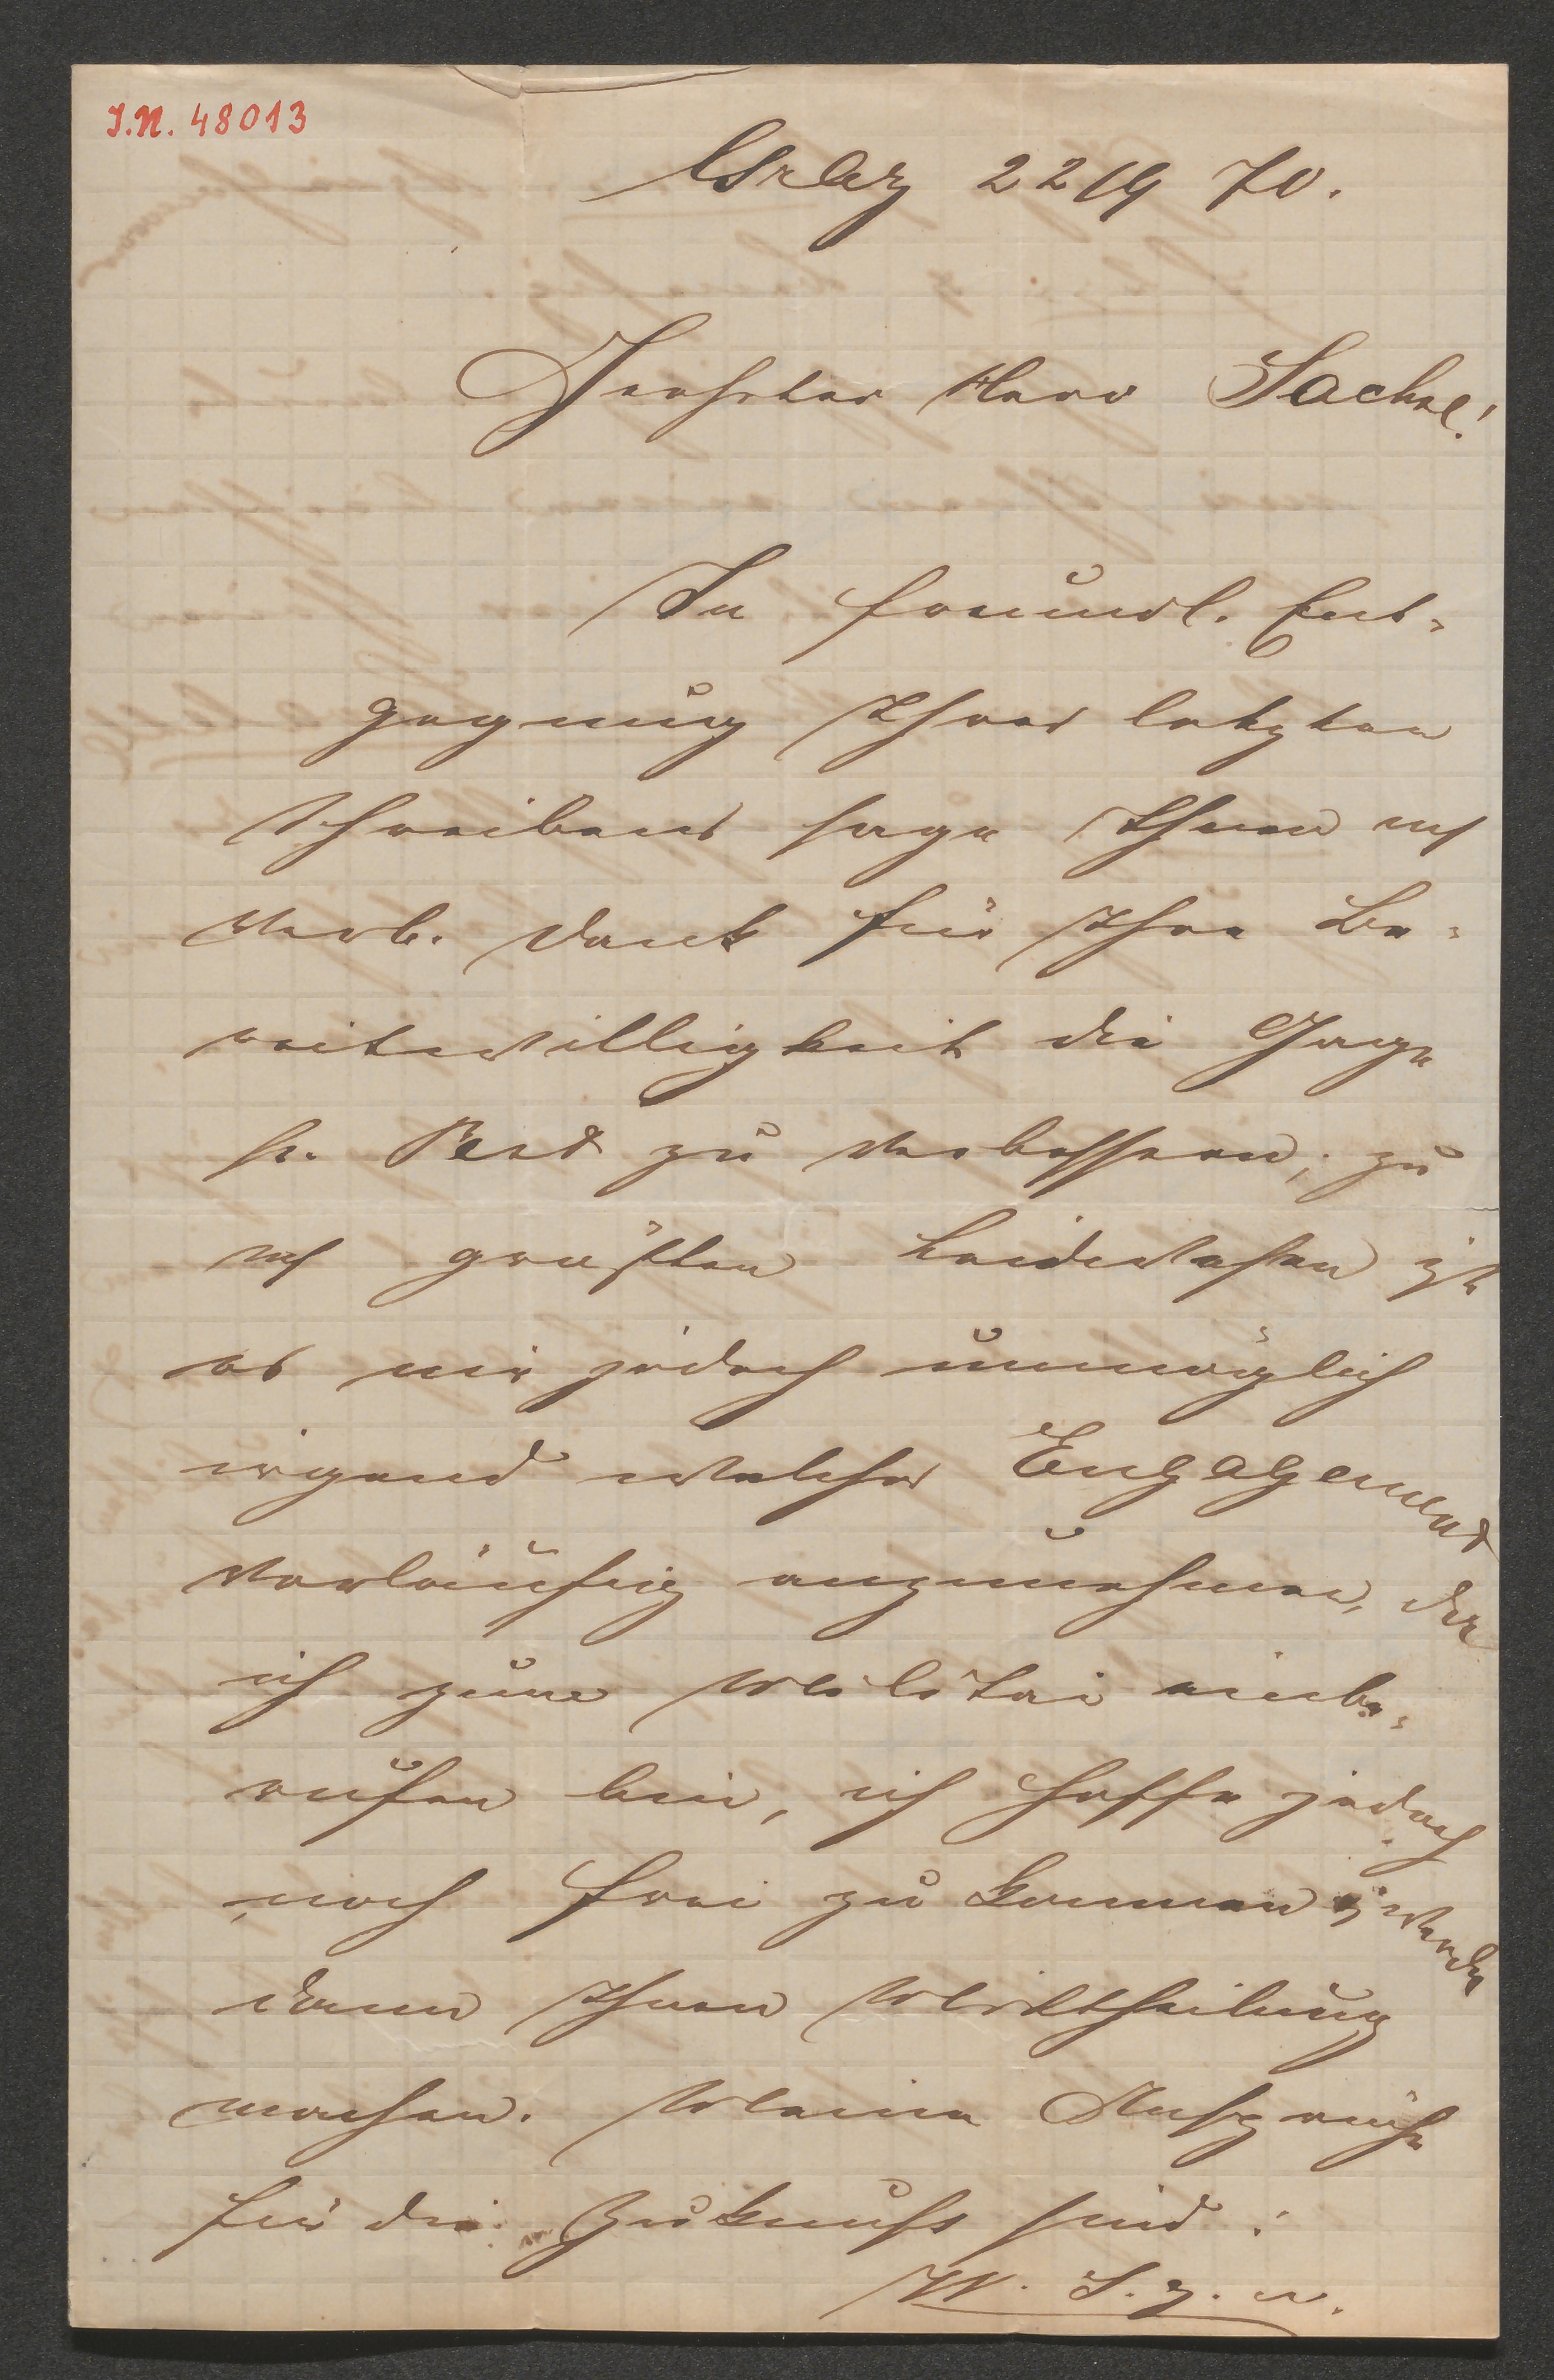 I.N. 48013
Graz 22/9 70.
Geehrter Herr Sachse!
In freundl. Ent-
gegnung Ihres letzten
Schreibens sage Ihnen m
verb. Dank für Ihre Be-
reitwilligkeit die Gage
fr. Pest zu verbessern; zu
m größten Leidwesen ist
es mir jedoch unmöglich
irgend welches Engagement
vorläufig anzunehmen, da
ich zum Militär einbe-
rufen bin, ich hoffe jedoch
noch frei zu kommen; werde
dann Ihnen Mittheilung
machen. Meine Ansprüche
für die Zukunft sind:
W. S. g. u.